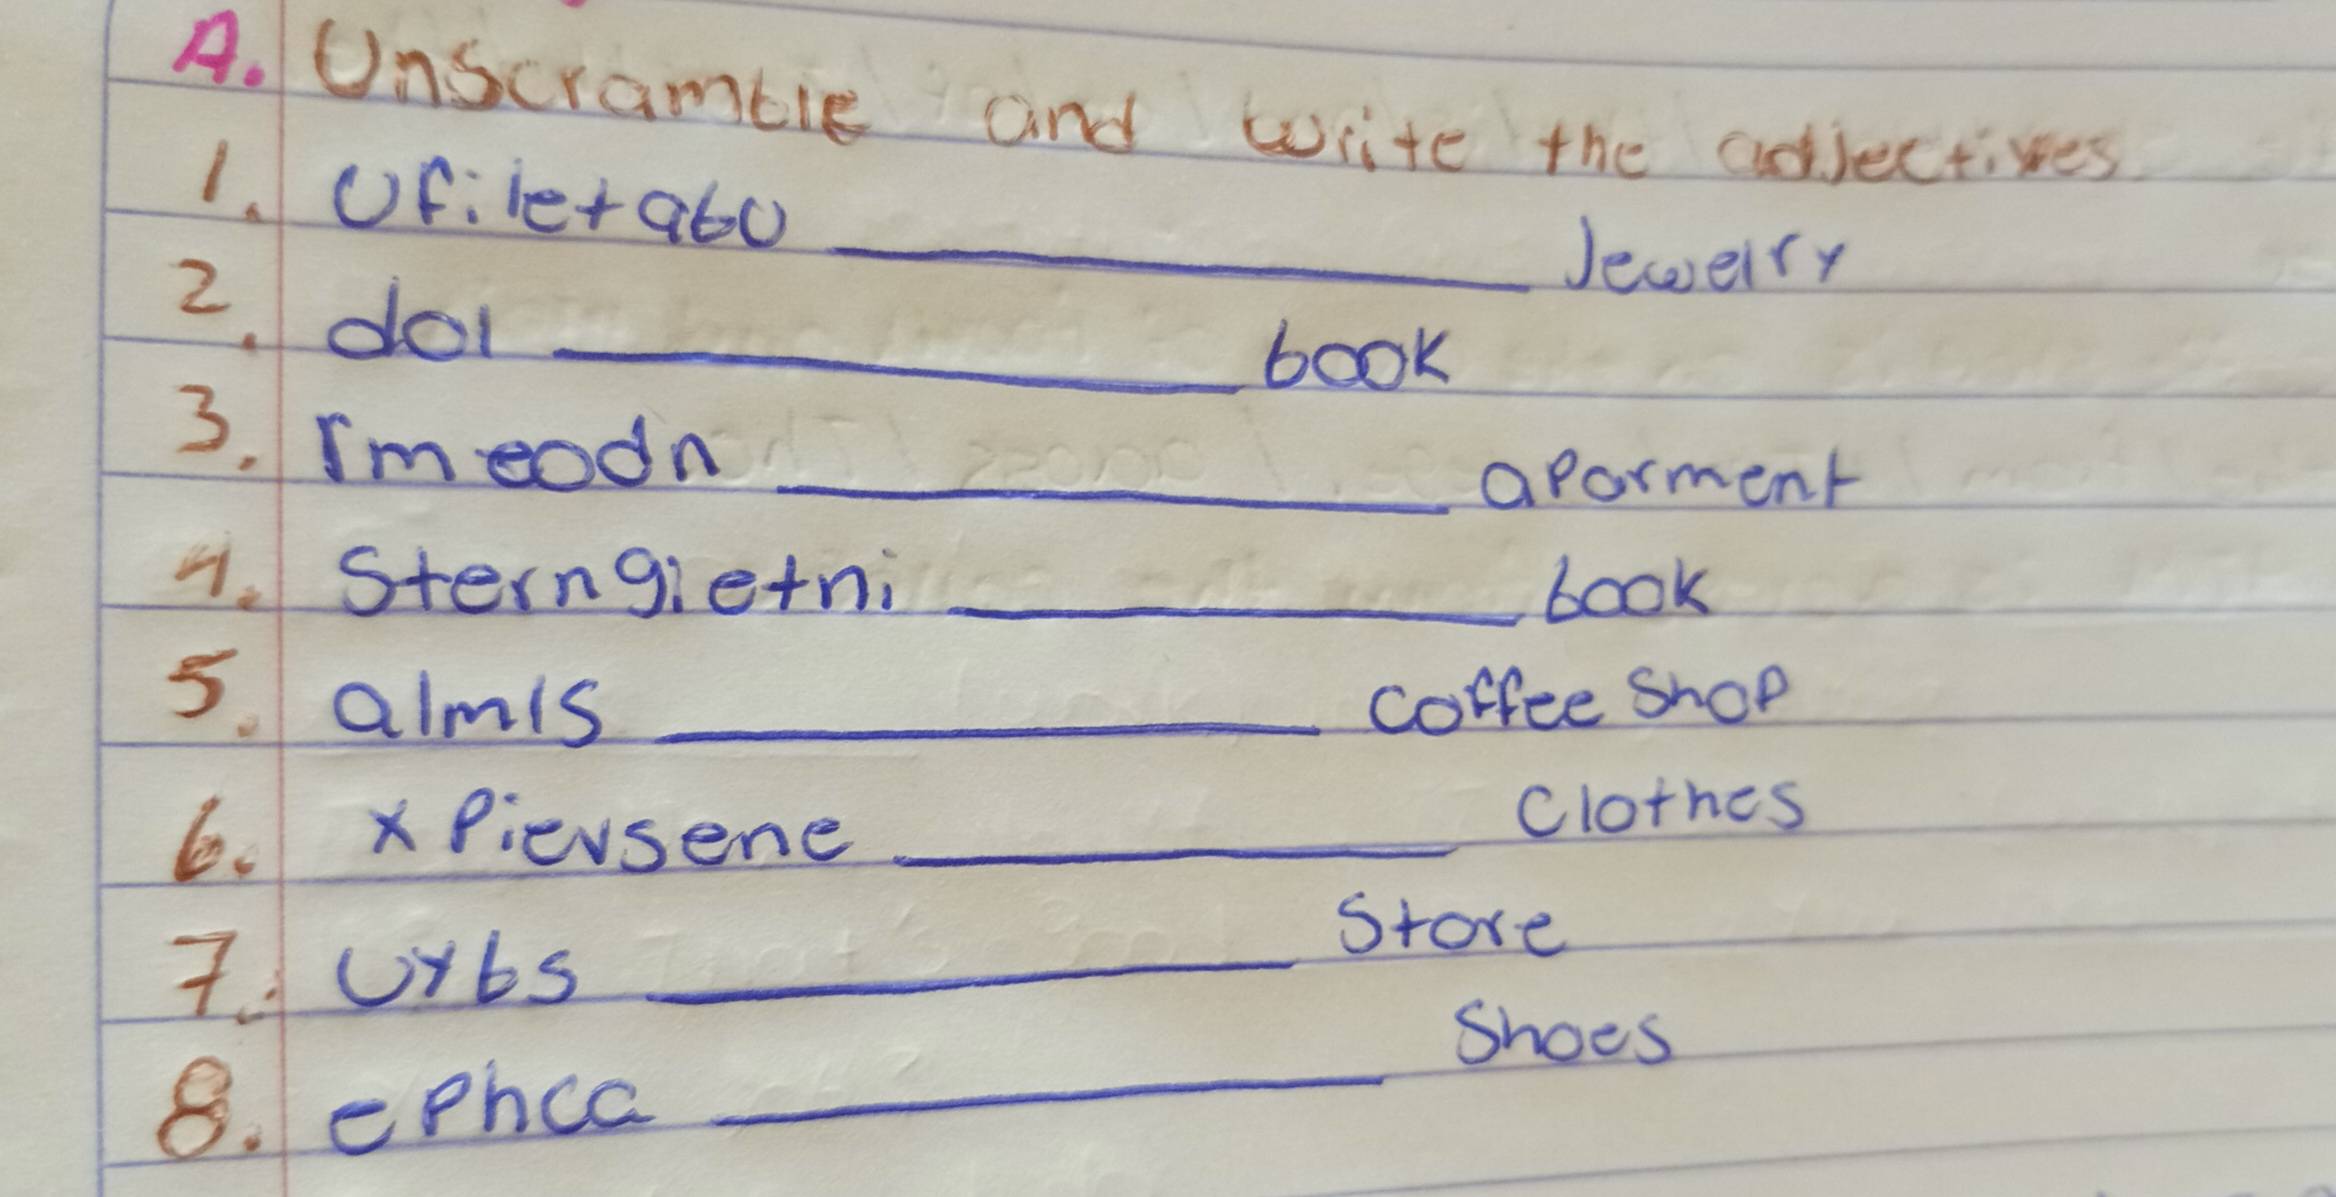 A. Unscramble and write the adjectives
1. Ufiletabu ________ Jewelry
2. dol ________ book
3. rmeodn ________ aparment
4. Sterngietni ________ book
5. almls ________ coffee Shop
6. xPievsene ________ Clothes
7. uybs ________ Store
8. ePhca ________ Shoes